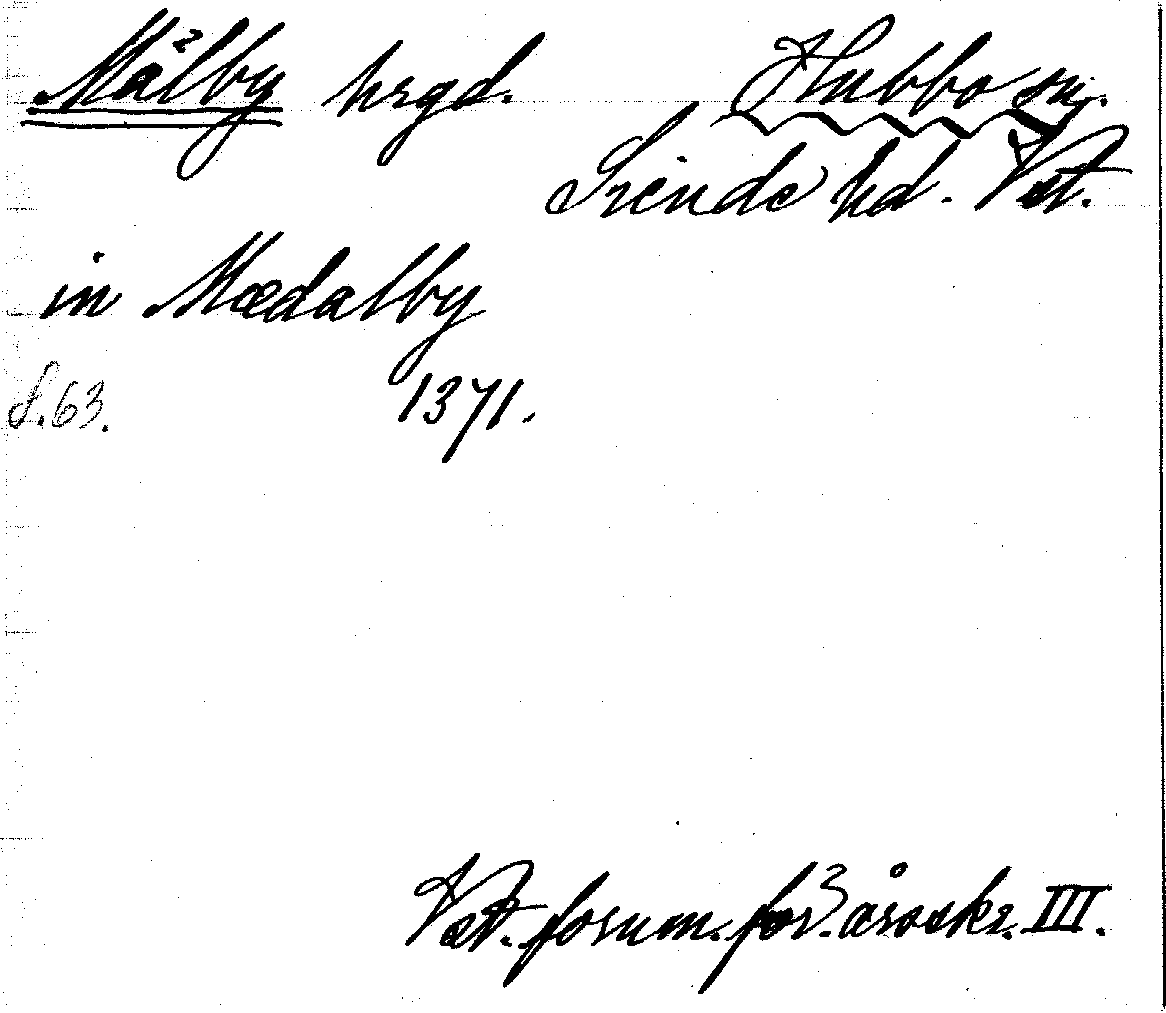 Mälby hrgd. Hubbo sn.
Siende hd. Vst.
in Mædalby
s. 63. 1371.
Vst. fornm. för. årsskr. III.